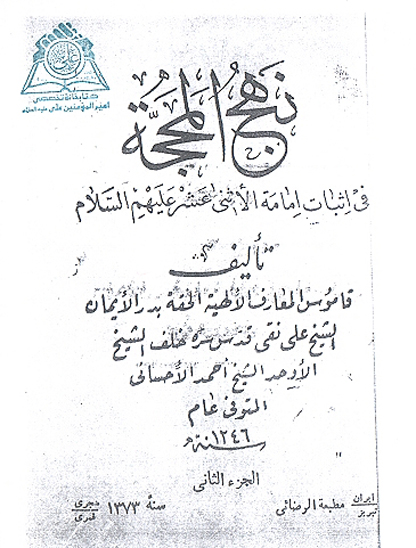 كتابخانه تخصصى
امير المؤمنين على عليه السلام
نهج المحجة
فى اثبات امامة الأثنى عشر عليهم السلام
تأليف
قاموس المعارف الألهية الحقة بدر الأيمان
الشيخ على نقى قدس سره خلف الشيخ
الأوحد الشيخ احمد الأحسائى
المتوفى عام
١٢٤٦ سنة
الجزء الثانى
ايران تبريز مطبعة الرضائى سنه ١٣٧٣ هجرى قمرى